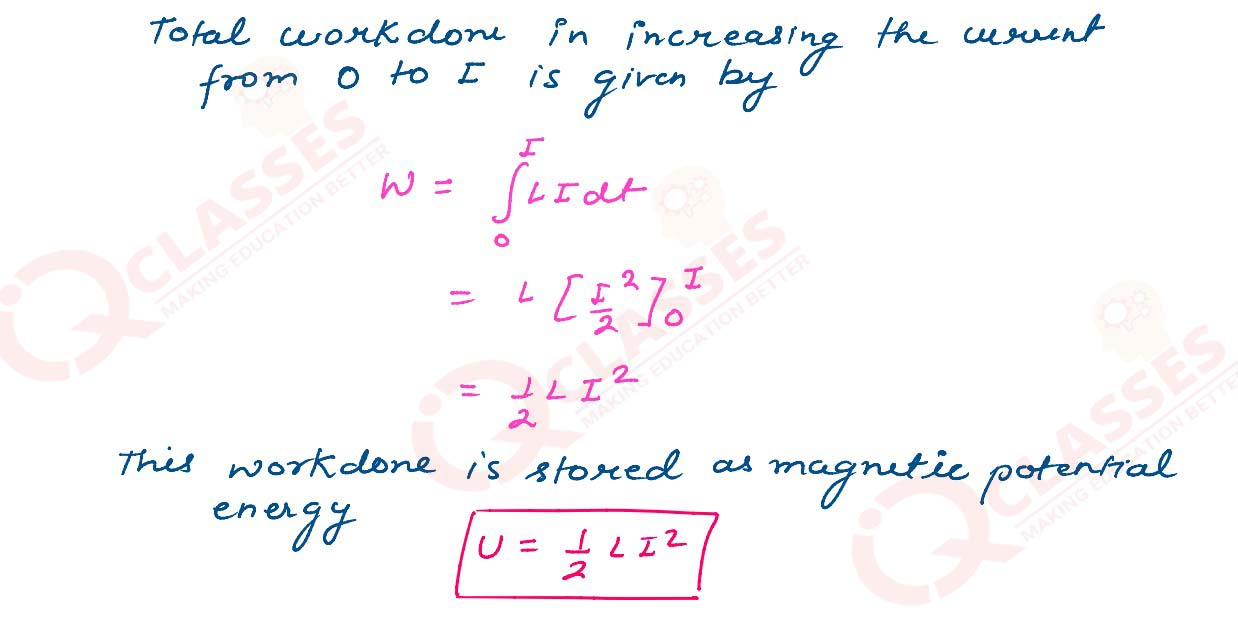 Total workdone in increasing the current
from 0 to I is given by
W = ∫₀ᴵ L I dt
= L [I²/2]₀ᴵ
= 1/2 L I²
This workdone is stored as magnetic potential
energy
U = 1/2 L I²
IQ CLASSES
MAKING EDUCATION BETTER
IQ CLASSES
MAKING EDUCATION BETTER
IQ CLASSES
MAKING EDUCATION BETTER